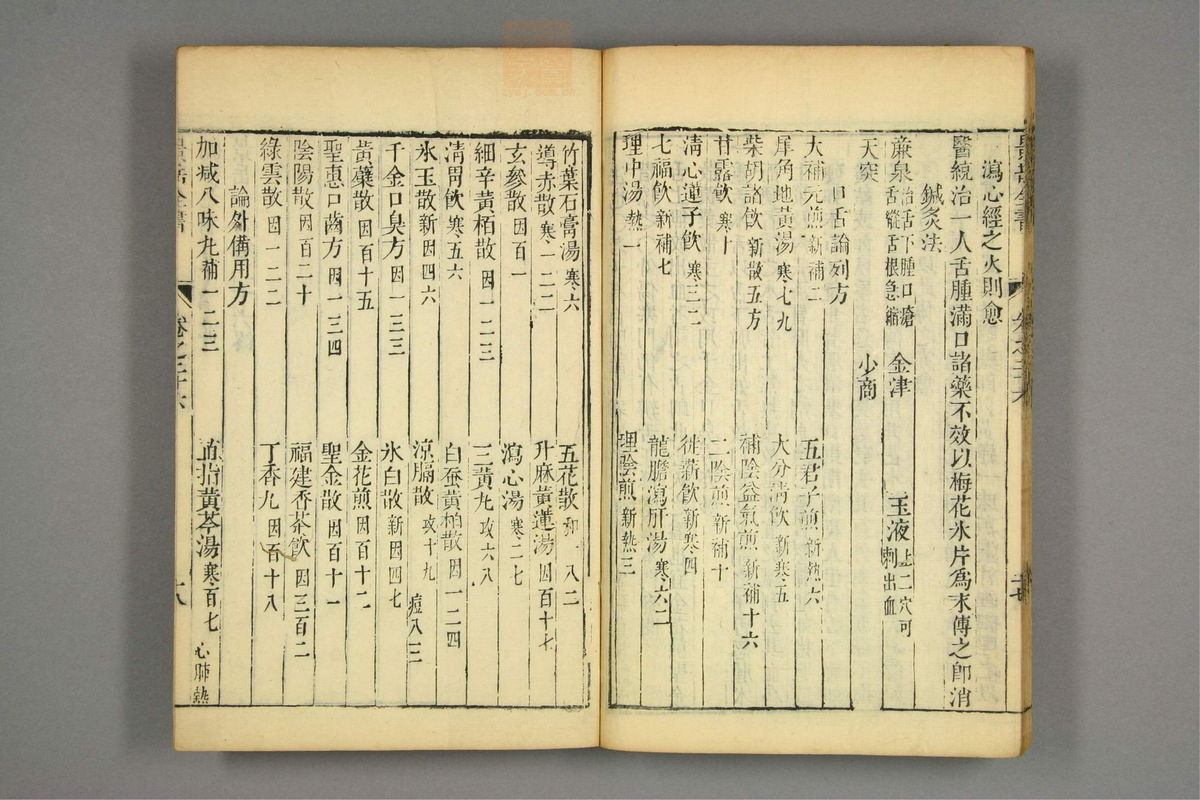 景岳全書
瀉心經之火則愈
醫統治一人舌腫滿口諸藥不效以梅花氷片爲末傳之卽消
鍼灸法
亷泉 治舌下腫口瘡舌縱舌根急縮 金津 玉液 上二穴可刺出血
天突 少商
口舌論列方
大補元煎 新補二 五君子煎 新熱六
犀角地黃湯 寒七九 大分清飲 新寒五
柴胡諸飲 新散五方 補陰益氣煎 新補十六
甘露飲 寒十 二陰煎 新補十
清心蓮子飲 寒三二 徙薪飲 新寒四
七福飲 新補七 龍膽瀉肝湯 寒六二
理中湯 熱一 理陰煎 新熱三
竹葉石膏湯 寒六 五花散 和一八二
導赤散 寒一二二 升麻黃連湯 因百十七
玄參散 因百一 瀉心湯 寒二七
細辛黃栢散 因一二三 三黃丸 攻六八
清胃飲 寒五六 白蚕黃栢散 因一二四
氷玉散 新因四六 涼膈散 攻十九 痘八三
千金口臭方 因一三三 氷白散 新因四七
黃蘗散 因百十五 金花煎 因百十二
聖惠口齒方 因一三四 聖金散 因百十一
陰陽散 因百二十 福建香茶飲 因三百二
綠雲散 因一二二 丁香丸 因百十八
論外備用方
加减八味丸 補一二三 直指黃芩湯 寒百七 心肺熱
景岳全書 卷之二十六 十八